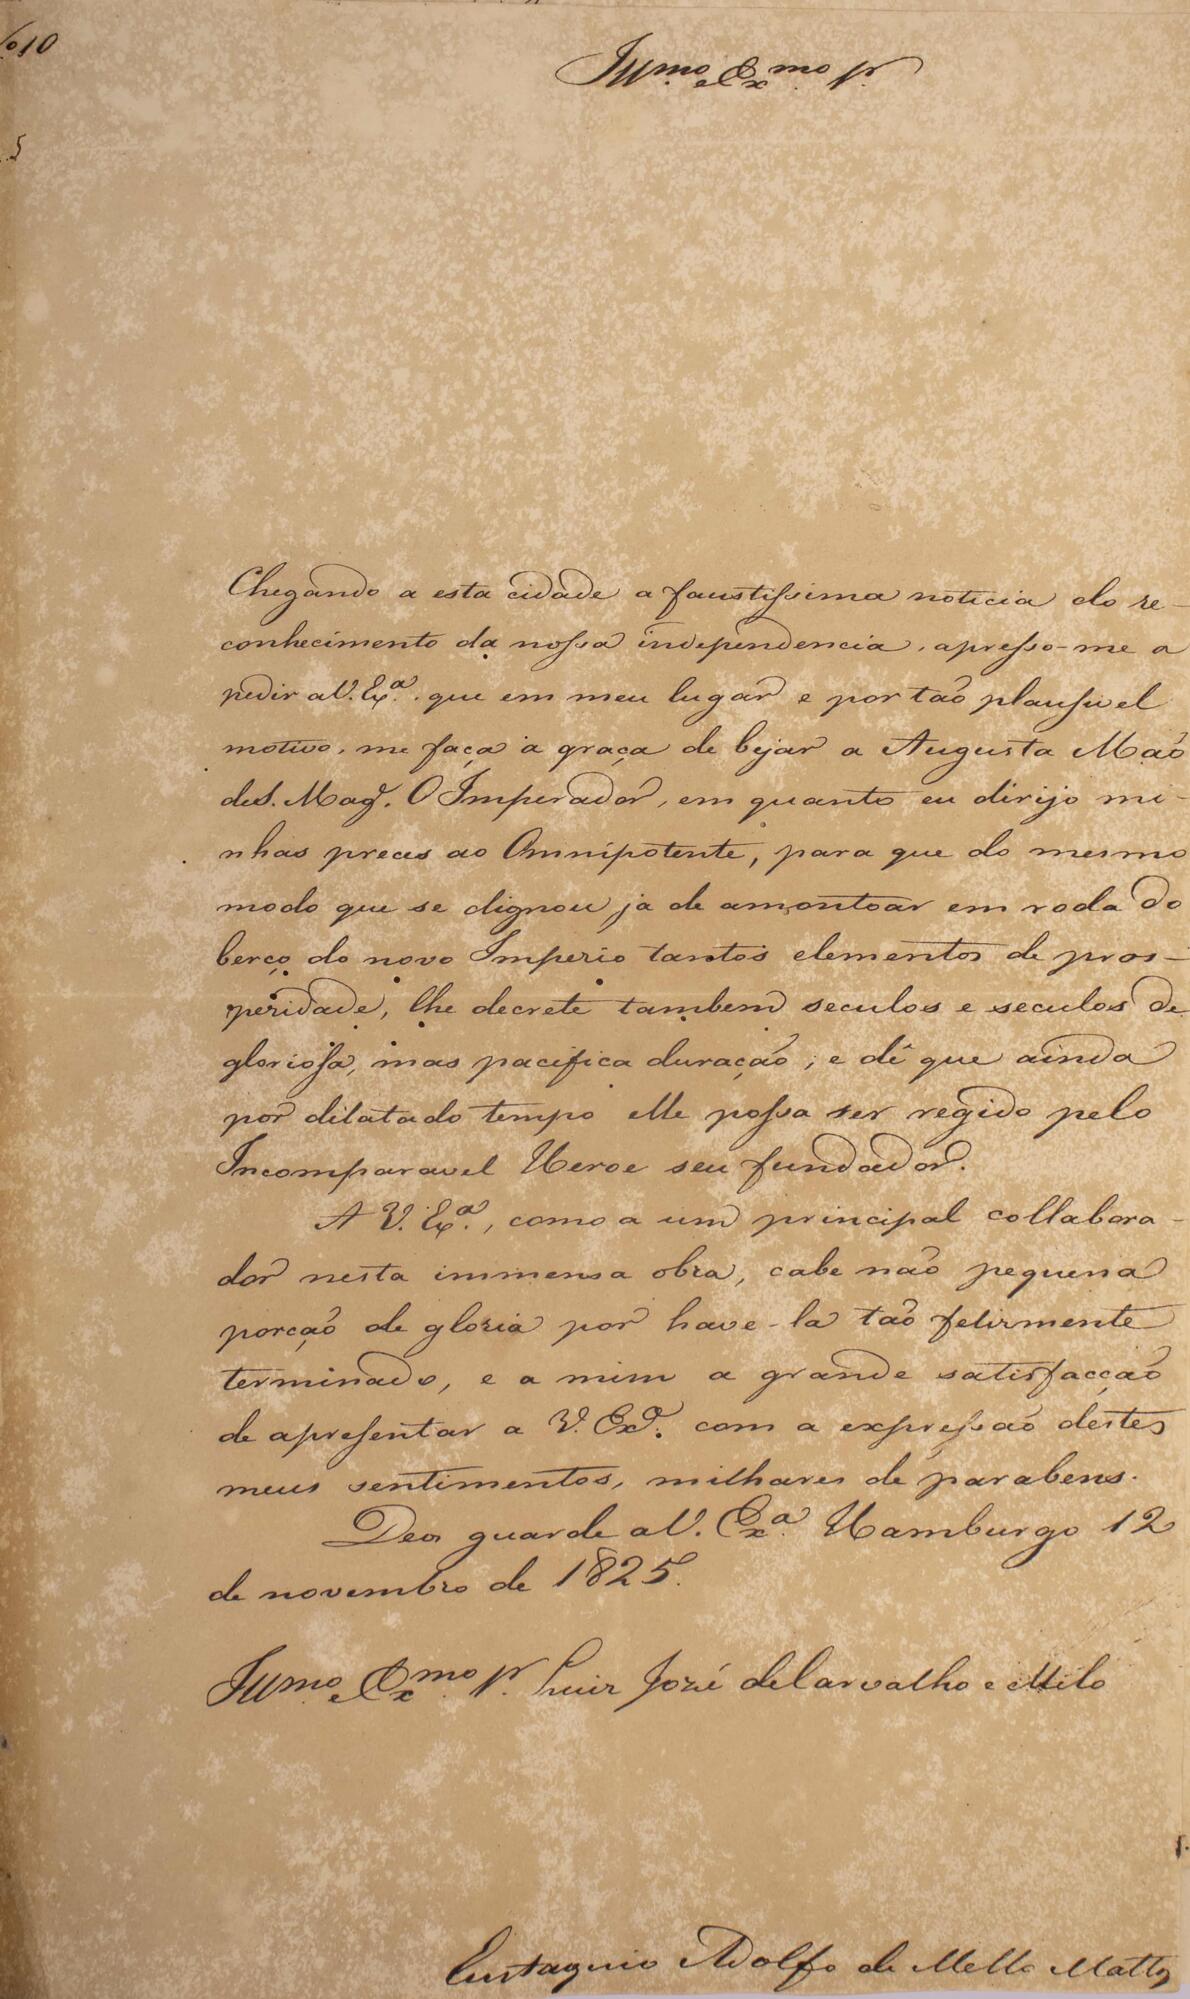 No 10
Illmo e Exmo Sr.
5
Chegando a esta cidade a faustissima noticia do re-
conhecimento da nossa independencia, apresso-me a
pedir a V. Exa. que em meu lugar e por tão plausivel
motivo, me faça a graça de bejar a Augusta Mão
de S. Magde. O Imperador, em quanto eu dirijo mi-
nhas preces ao Omnipotente, para que do mesmo
modo que se dignou ja de amontoar em roda do
berço do novo Imperio tantos elementos de pros-
peridade, lhe decrete tambem seculos e seculos de
gloriosa, mas pacifica duração; e dê que ainda
por dilatado tempo elle possa ser regido pelo
Incomparavel Heroe seu fundador.
A V. Exa., como a um principal collabora-
dor nesta immensa obra, cabe não pequena
porção de gloria por have-la tão felizmente
terminado, e a mim a grande satisfacção
de apresentar a V. Exa. com a expressão destes
meus sentimentos, milhares de parabens.
Deos guarde a V. Exa. Hamburgo 12
de novembro de 1825.
Illmo e Exmo Sr. Luiz José de Carvalho e Mello
Eustaquio Adolfo de Mello Mattos